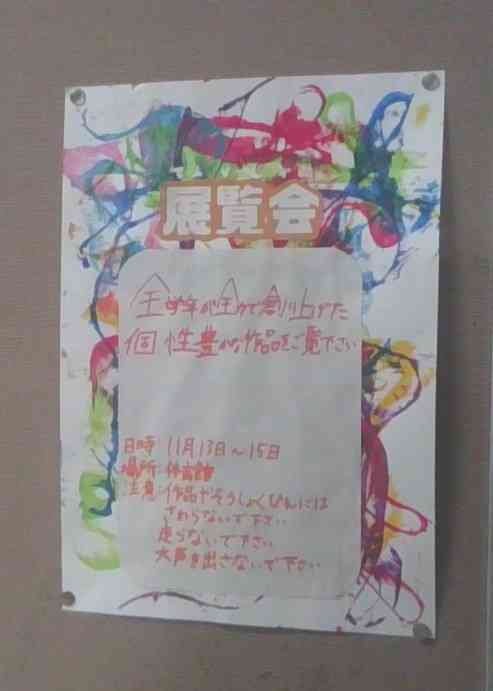 展覧会
全学年が全力で創り上げた
個性豊かな作品をご覧下さい
日時 11月13日～15日
場所:体育館
注意:作品やそうしょくひんには
さわらないで下さい
走らないで下さい
大声を出さないで下さい